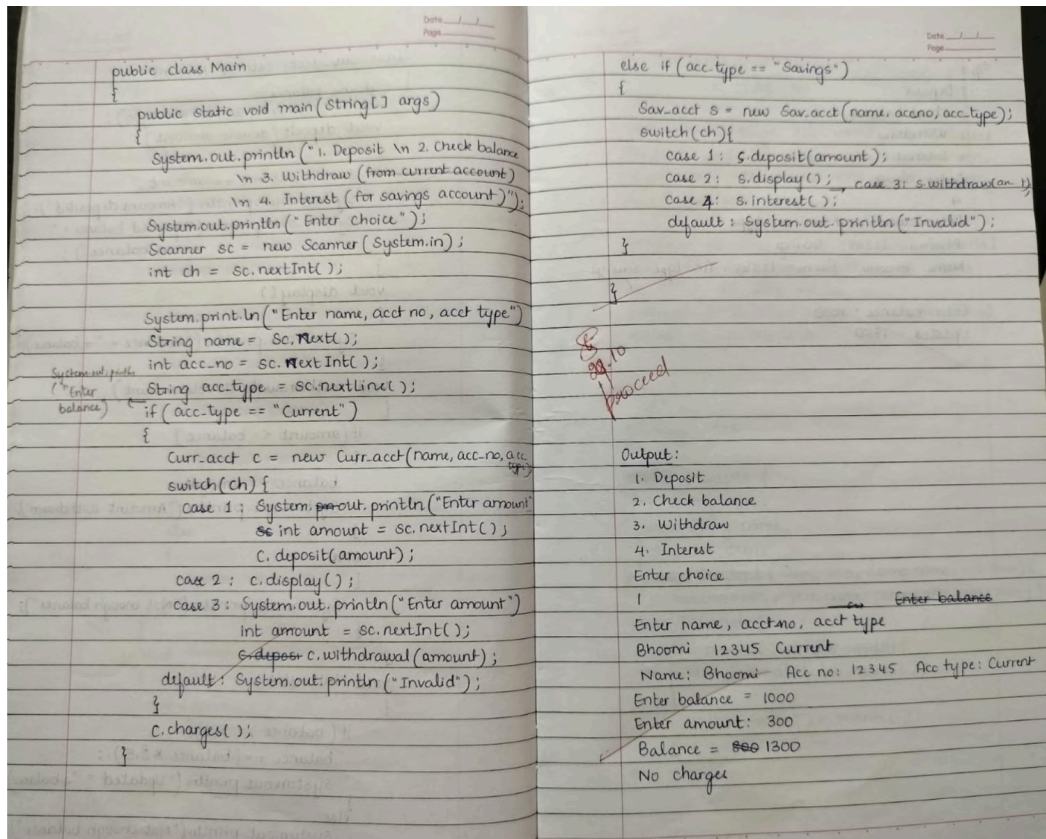 Date / /
Page
public class Main
{
public static void main(String[] args)
{
System.out.println("1. Deposit \n 2. Check balance
\n 3. Withdraw (from current account)
\n 4. Interest (for savings account)");
System.out.println("Enter choice");
Scanner sc = new Scanner(System.in);
int ch = sc.nextInt();
System.print.ln("Enter name, acct no, acct type")
String name = sc.Next();
int acc-no = sc.Next Int();
String acc-type = sc.nextLine();
System.out.println
("Enter
balance)
if(acc-type == "Current")
{
Curr-acct c = new Curr-acct(name, acc-no, acc
type);
switch(ch) {
case 1: System.out.println("Enter amount"
int amount = sc.nextInt();
c.deposit(amount);
case 2: c.display();
case 3: System.out.println("Enter amount")
int amount = sc.nextInt();
c.withdrawal(amount);
default: System.out.println("Invalid");
}
c.charges();
}
Date / /
Page
else if(acc-type == "Savings")
{
Sav-acct s = new Sav-acct(name, accno, acc-type);
switch(ch){
case 1: s.deposit(amount);
case 2: s.display(); case 3: s.withdraw(
case 4: s.interest();
default: System.out.println("Invalid");
}
}
proceed
Output:
1. Deposit
2. Check balance
3. Withdraw
4. Interest
Enter choice
1 Enter balance
Enter name, acct no, acct type
Bhoomi 12345 Current
Name: Bhoomi Acc no: 12345 Acc type: Current
Enter balance = 1000
Enter amount: 300
Balance = 1300
No charges